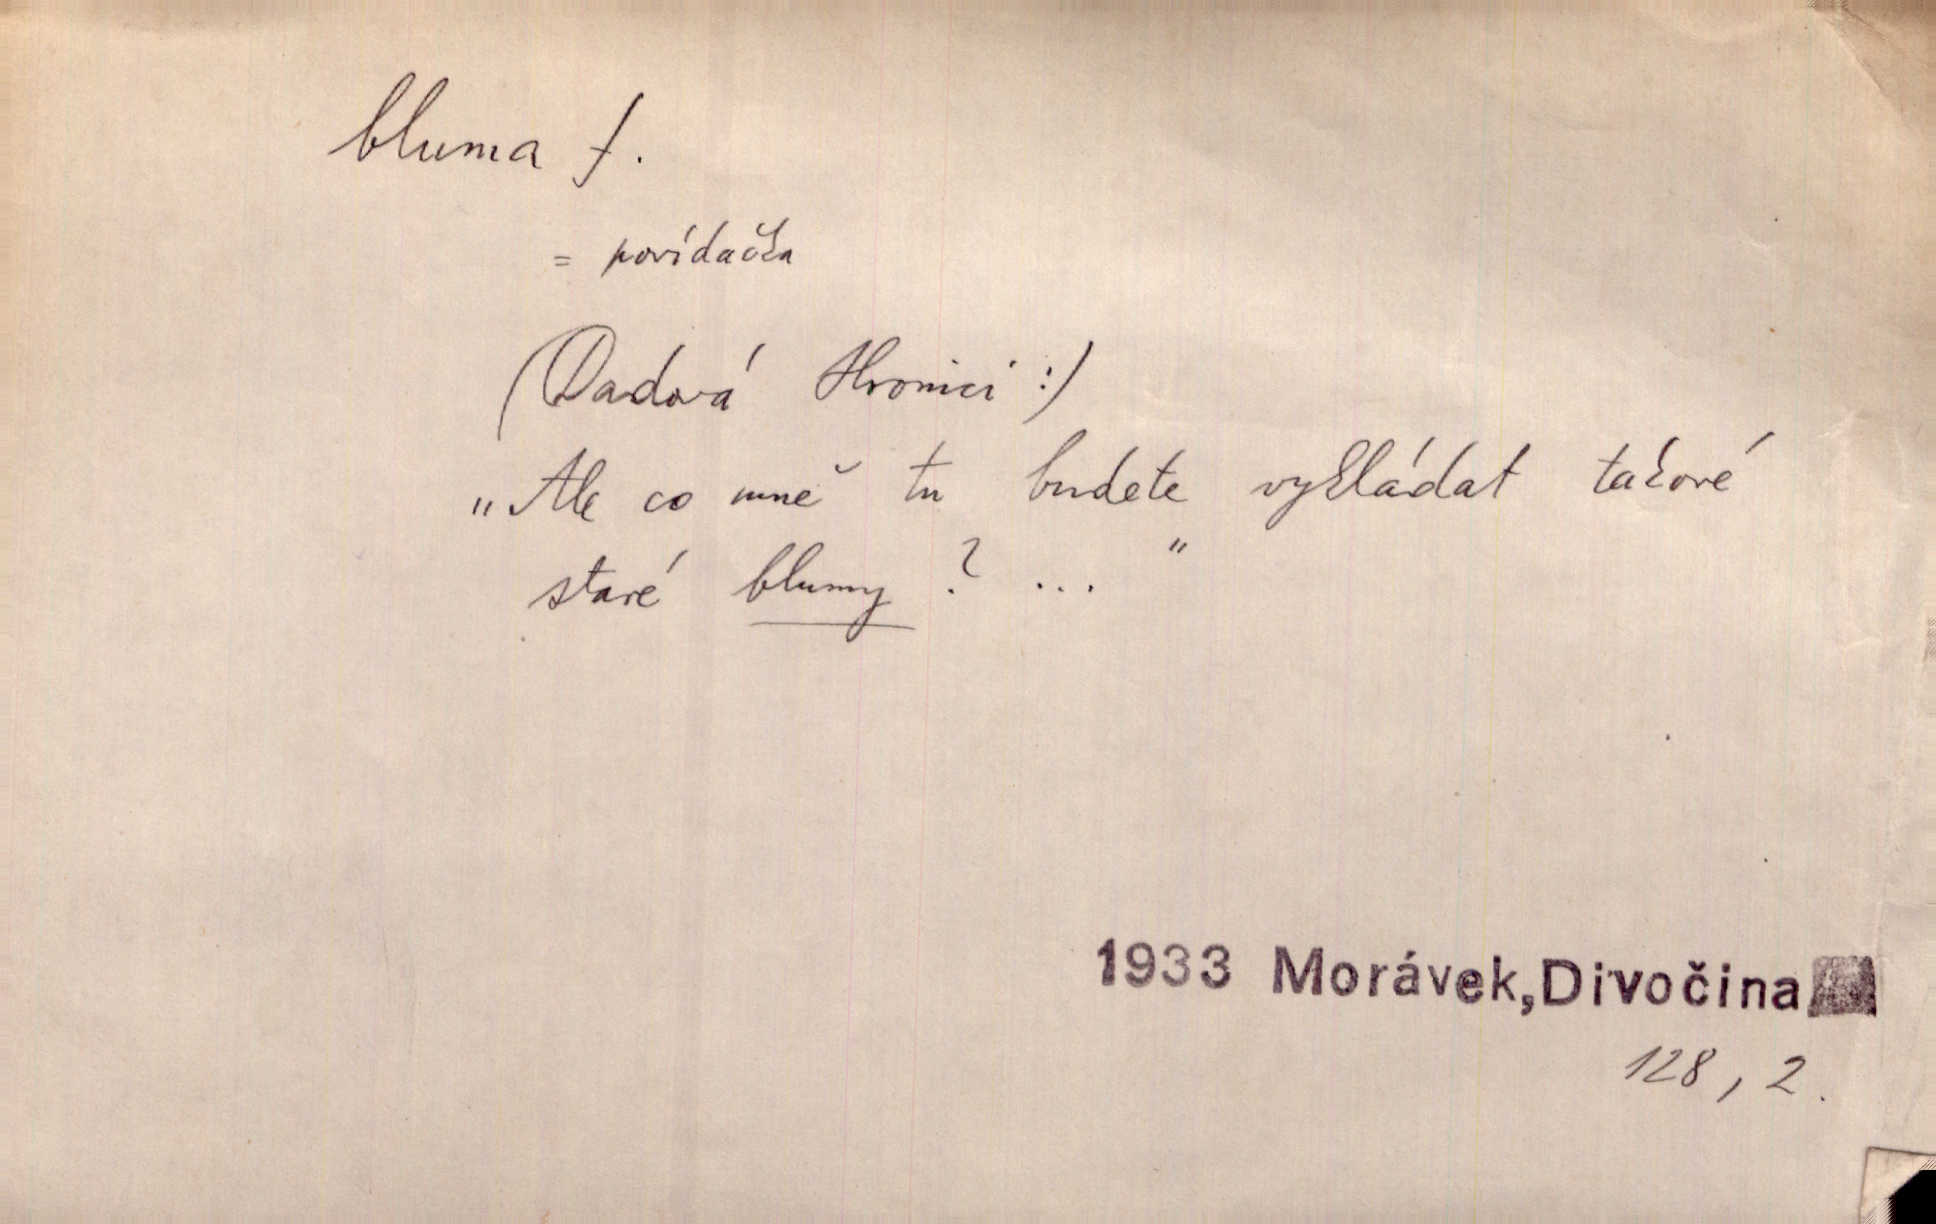 bluma f.
= povídačka
(Dadová Hronici :)
„Ale co mně tu budete vykládat takové
staré blumy ? ... "
1933 Morávek, Divočina
128, 2.